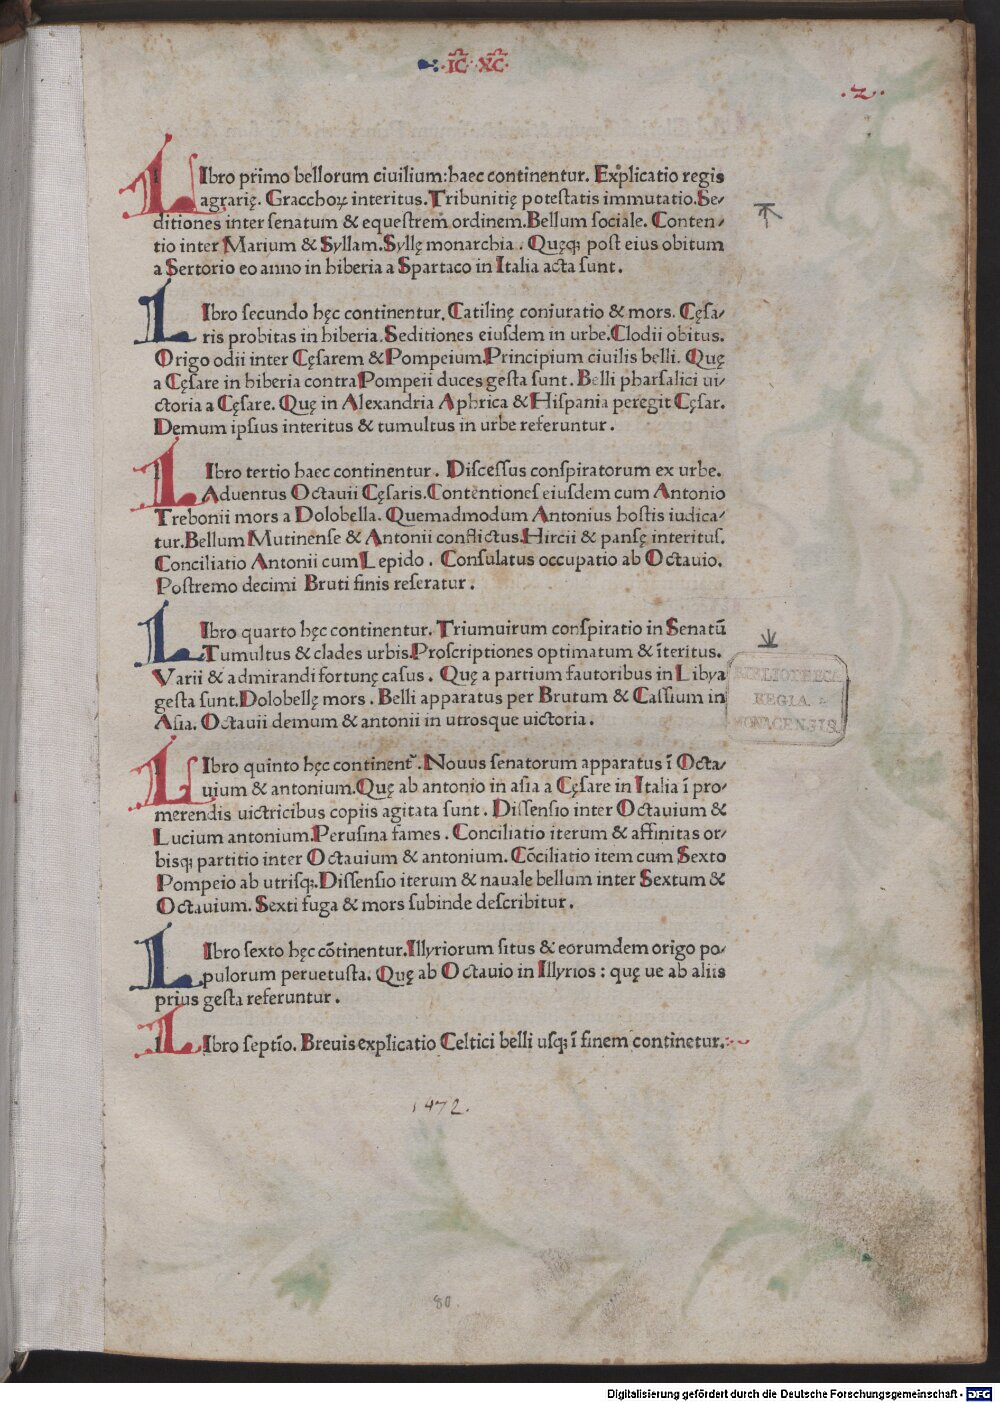 IC XC
.2.
LIbro primo bellorum ciuilium:haec continentur. Explicatio regis
agrarię. Gracchoꝝ interitus.Tribunitię potestatis immutatio.Se⸗
ditiones inter senatum & equestrem ordinem.Bellum sociale. Conten⸗
tio inter Marium & Syllam.Syllę monarchia. Quęqꝫ post eius obitum
a Sertorio eo anno in hiberia a Spartaco in Italia acta sunt.
LIbro secundo hęc continentur. Catilinę coniuratio & mors. Cęsa⸗
ris probitas in hiberia.Seditiones eiusdem in urbe.Clodii obitus.
Origo odii inter Cęsarem & Pompeium.Principium ciuilis belli. Quę
a Cęsare in hiberia contra Pompeii duces gesta sunt. Belli pharsalici ui⸗
ctoria a Cęsare. Quę in Alexandria Aphrica & Hispania peregit Cęsar.
Demum ipsius interitus & tumultus in urbe referuntur.
LIbro tertio haec continentur. Discessus conspiratorum ex urbe.
Aduentus Octauii Cęsaris.Contentiones eiusdem cum Antonio
Trebonii mors a Dolobella. Quemadmodum Antonius hostis iudica⸗
tur.Bellum Mutinense & Antonii conflictus.Hircii & pansę interitus.
Conciliatio Antonii cum Lepido. Consulatus occupatio ab Octauio.
Postremo decimi Bruti finis referatur.
LIbro quarto hęc continentur. Triumuirum conspiratio in Senatū
Tumultus & clades urbis.Proscriptiones optimatum & īteritus.
Varii & admirandi fortunę casus. Quę a partium fautoribus in Libya
gesta sunt.Dolobellę mors. Belli apparatus per Brutum & Cassium in
Asia. Octauii demum & antonii in utrosque uictoria.
BIBLIOTHECA
REGIA.
MONACENSIS.
LIbro quinto hęc continent᷑.Nouus senatorum apparatus ī Octa⸗
uium & antonium.Quę ab antonio in asia a Cęsare in Italia ī pro⸗
merendis uictricibus copiis agitata sunt. Dissensio inter Octauium &
Lucium antonium.Perusina fames. Conciliatio iterum & affinitas or⸗
bisqꝫ partitio inter Octauium & antonium. Cōciliatio item cum Sexto
Pompeio ab utrisqꝫ.Dissensio iterum & nauale bellum inter Sextum &
Octauium. Sexti fuga & mors subinde describitur.
LIbro sexto hęc cōtinentur.Illyriorum situs & eorumdem origo po⸗
pulorum peruetusta. Quę ab Octauio in Illyrios: quę ue ab aliis
prius gesta referuntur.
LIbro septīo. Breuis explicatio Celtici belli usqꝫ ī finem continetur.
1472.
80.
Digitalisierung gefördert durch die Deutsche Forschungsgemeinschaft - DFG